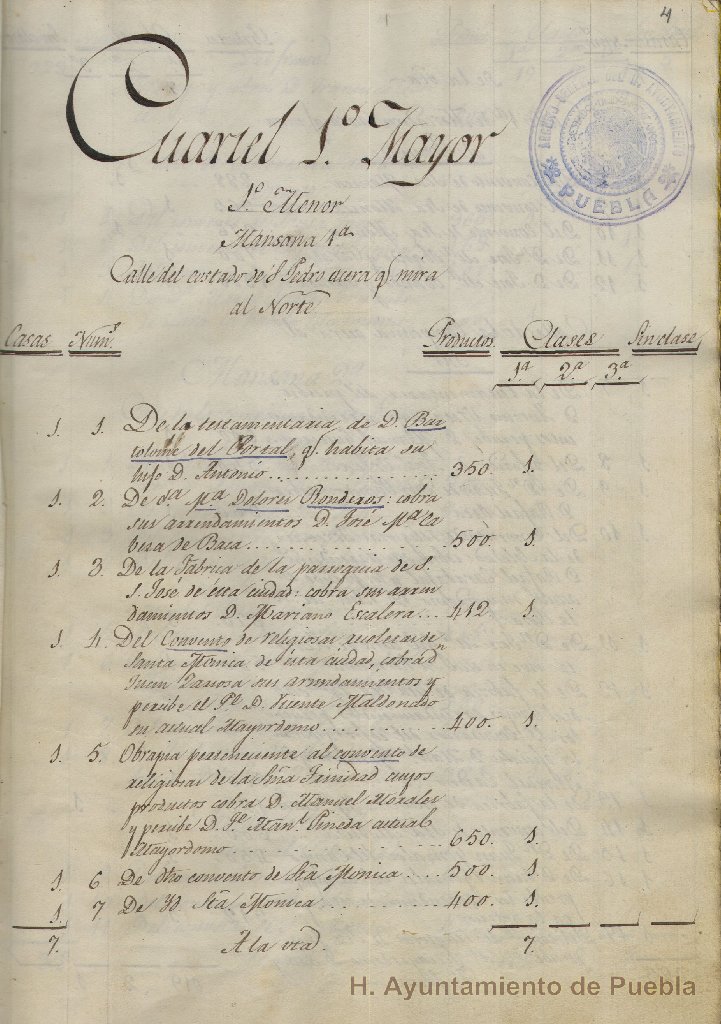 4
Cuartel 1.º Mayor
1.º Menor
Mansana 1ª
Calle del costado de S. Pedro acera q.e mira
al Norte
ARCHIVO GENERAL DEL H. AYUNTAMIENTO
PUEBLA
Casas Num.s Productos. Clases Sin clase
1.ª 2.ª 3.ª
1. 1. De la testamentaria de D. Bar
tolome del Portal, q.e habita su
hijo D. Antonio 350. 1.
1. 2. De d.ª M.ª Dolores Ronderos: cobra
sus arrendamientos D. José M.ª Ca
beza de Baca 500. 1.
1. 3. De la Fabrica de la parroquia de S.
S. José de esta ciudad: cobra sus arren
damientos D. Mariano Escalera 412. 1.
1. 4. Del Convento de religiosas recoletas de
Santa Monica de esta ciudad, cobra d.n
Juan sus arrendamientos y
percibe el P.e D. Vicente Maldonado
su actual Mayordomo 400. 1.
1. 5. Obrapia perteneciente al convento de
religiosas de la Sma Trinidad cuyos
productos cobra D. Manuel Morales
y percibe D. J.e Man.l Pineda actual
Mayordomo 650. 1.
1. 6 De dho convento de Sta Monica 500. 1.
1. 7 De Yd. Sta Monica 400. 1.
7. A la vta. 7.
H. Ayuntamiento de Puebla